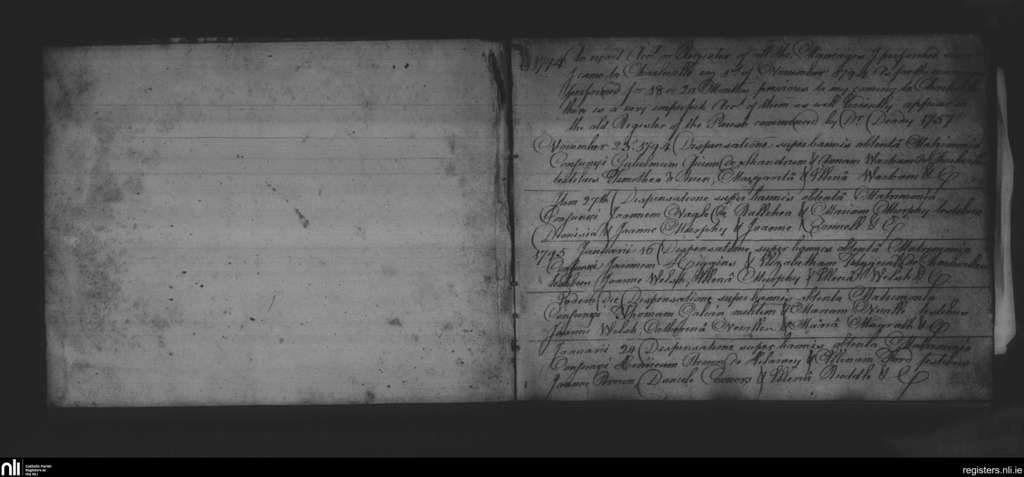 1794 An exact Acct. or Register of all the Marriages I performed since
I came to Charleville on 1st of November 1794 as for the marriages
performed for 18 or 20 Months previous to my coming to Charleville
there is a very imperfect Acct. of them as will Evidently appear in
the old Register of the Parish commenced by Dr. Deady 1757
November 23d. 1794 Dispensatione super bannis obtentâ Matrimonio
Conjunxi Gulielmum Quinn de & Annam Warham de
testibus Timotheo Margarita & Helenâ Warham &c
27th Dispensatione super bannis obtentâ Matrimonio
Conjunxi Joannem Nagle Ballihea & Mariam Murphy testibus
Dionisio & Joanne Murphy & Joanne Connell &c
1795 Januarii 16 Dispensatione super bannis obtentâ Matrimonio
Conjunxi Joannem Higgins & Elizabetham Fitzgerald de Charleville
testibus Joanne Welsh, Helenâ Murphy & Helenâ Welsh &c
Eodem die Dispensatione super bannis obtenta Matrimonio
Conjunxi Thomam militem & Mariam Neville testibus
Joanne Welsh Catherinâ Neville & Mariâ Magrath &c
Januarii 24 Dispensatione super bannis obtenta Matrimonio
Conjunxi Henricum Brown de Killarney & testibus
Joanne Brown Daniele Connors & Helenâ Beddle &c
nli
Catholic Parish
Registers at
the NLI
registers.nli.ie